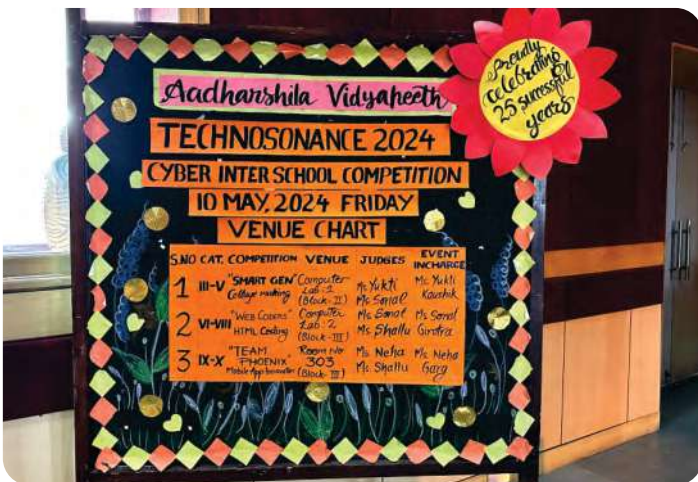 Proudly
celebrating
25 successful
years
Aadharshila Vidyapeeth
TECHNOSONANCE 2024
CYBER INTER SCHOOL COMPETITION
10 MAY, 2024 FRIDAY
VENUE CHART
S.NO CAT. COMPETITION VENUE JUDGES EVENT INCHARGE
1 III-V "SMART GEN" Collage making Computer Lab:1 (Block-II) Ms. Yukti Ms. Sonal Ms. Yukti Kaushik
2 VI-VIII "WEB CODERS" HTML Coding Computer Lab:2 (Block-III) Ms. Sonal Ms. Shallu Ms. Sonal Girotra
3 IX-X "TEAM PHOENIX" Mobile App Innovation Room No 303 (Block-III) Ms. Neha Ms. Shallu Ms. Neha Garg